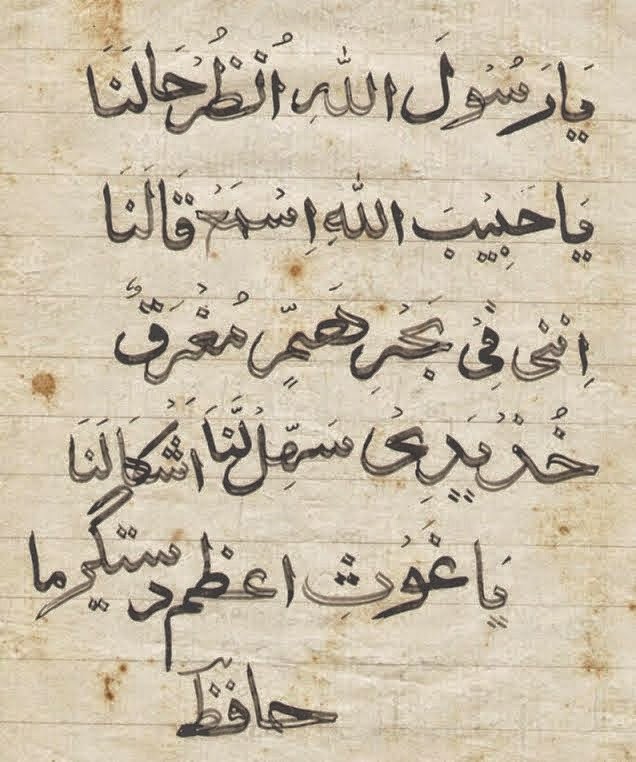 يَا رَسُوْلَ اللّٰهِ اُنْظُرْ حَالَنَا
يَا حَبِيْبَ اللّٰهِ اِسْمَعْ قَالَنَا
اِنَّنِیْ فِیْ بَحْرِ هَمٍّ مُغْرَقٌ
خُذْ يَدِیْ سَهِّلْ لَّنَا اَشْكَالَنَا
يَا غَوْثِ اعظم دستگیر ما
حافظؔ